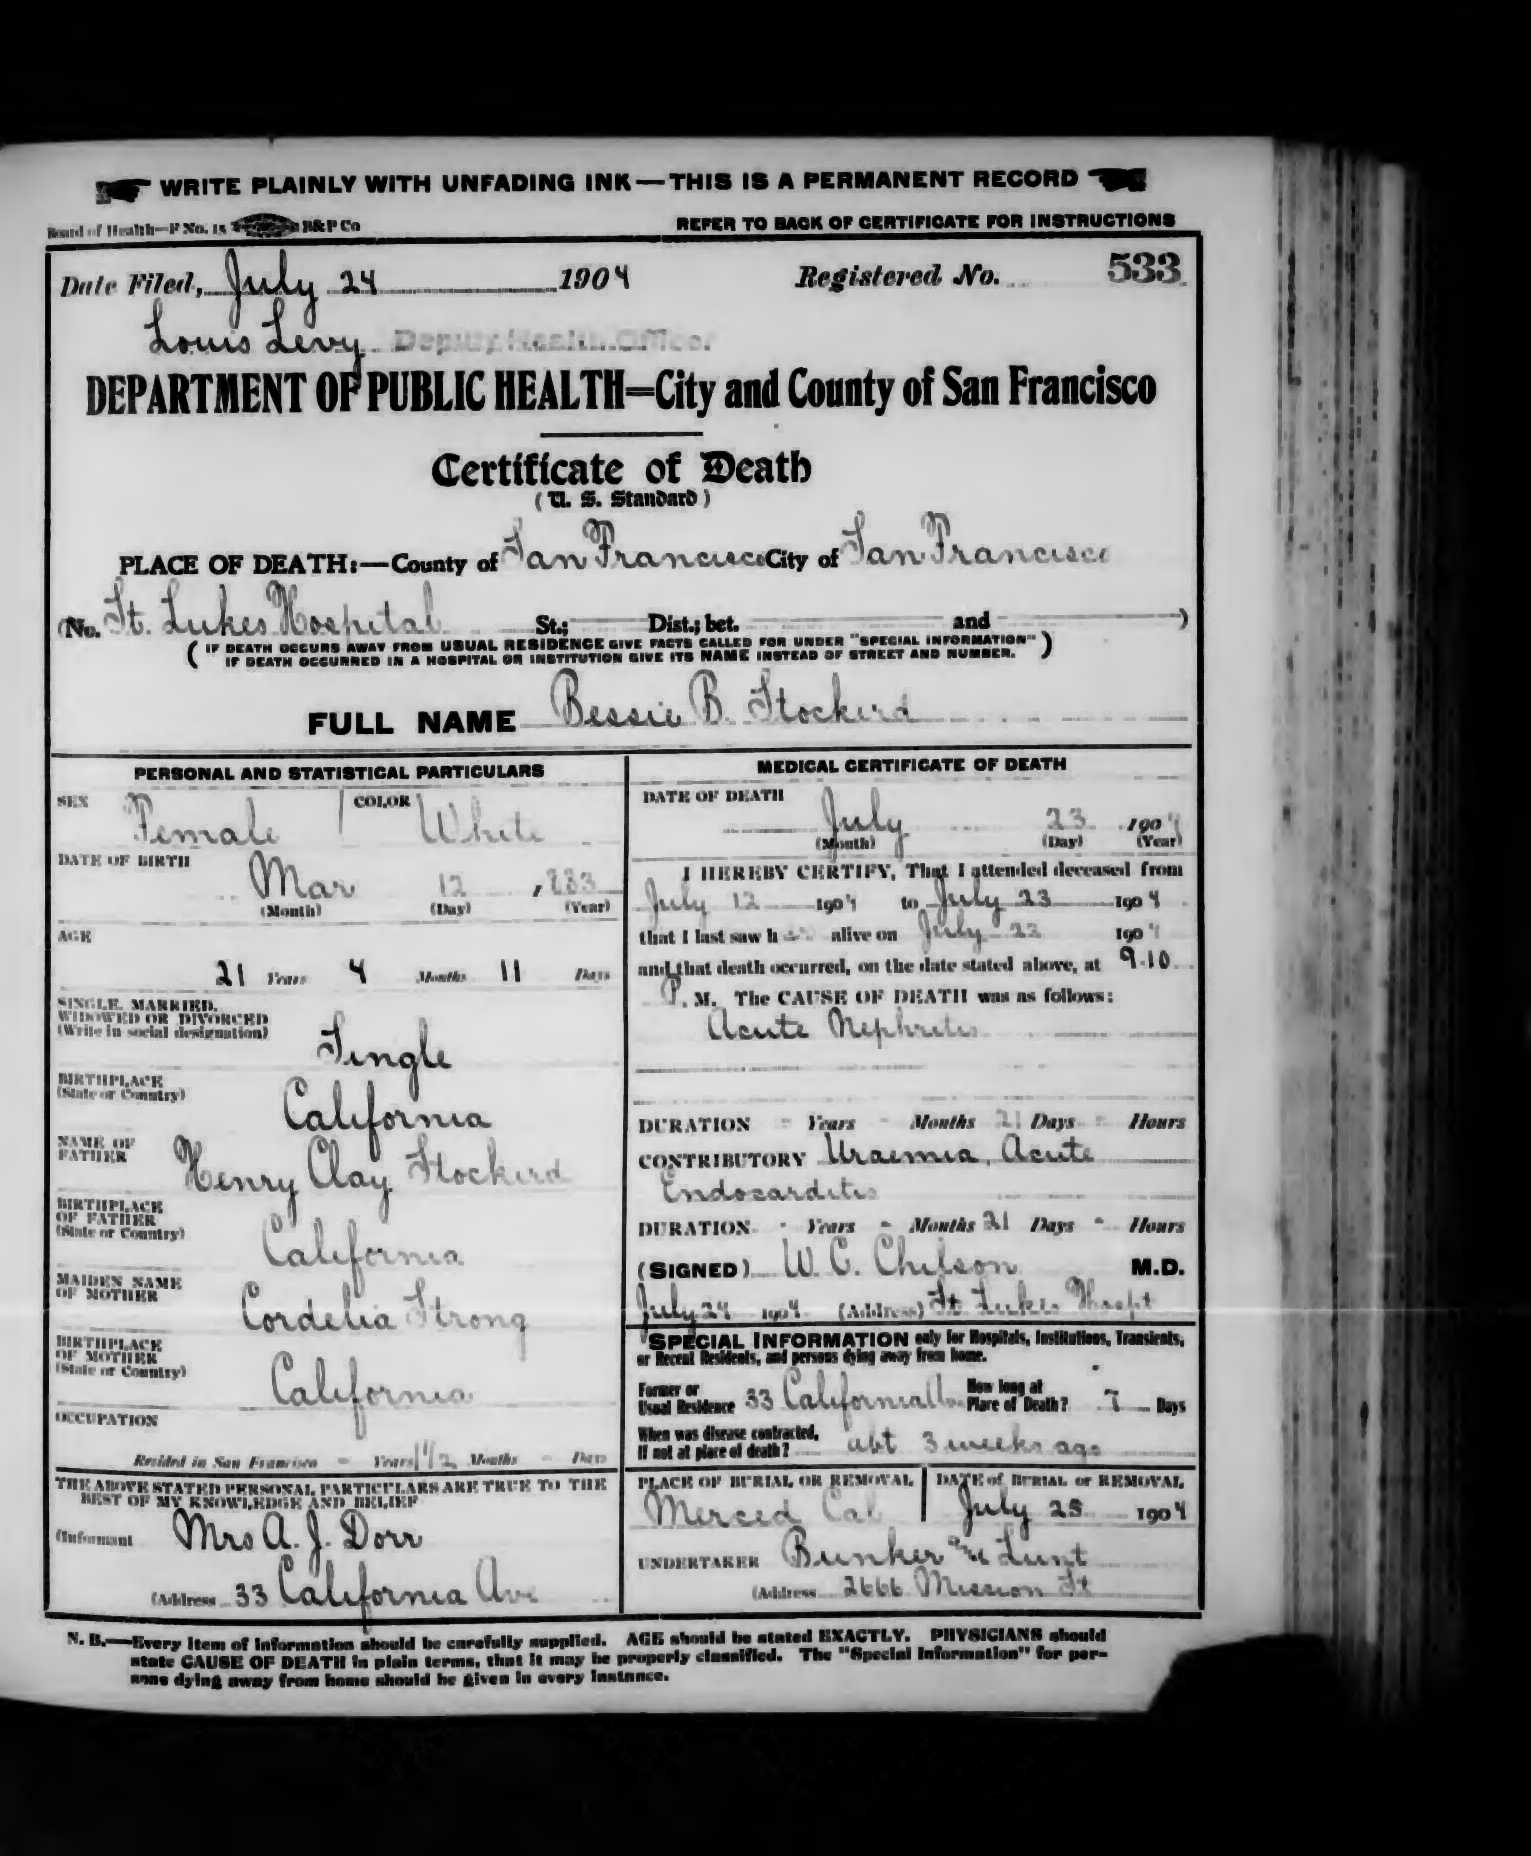 WRITE PLAINLY WITH UNFADING INK—THIS IS A PERMANENT RECORD
Board of Health—F No. 15 B&P Co
REFER TO BACK OF CERTIFICATE FOR INSTRUCTIONS
Date Filed, July 24 1904 Registered No. 533
Louis Levy Deputy Health Officer
DEPARTMENT OF PUBLIC HEALTH=City and County of San Francisco
Certificate of Death
(U. S. Standard)
PLACE OF DEATH:—County of San Francisco City of San Francisco
(No. St. Lukes Hospital St.; Dist.; bet. and )
(IF DEATH OCCURS AWAY FROM USUAL RESIDENCE GIVE FACTS CALLED FOR UNDER "SPECIAL INFORMATION"
IF DEATH OCCURRED IN A HOSPITAL OR INSTITUTION GIVE ITS NAME INSTEAD OF STREET AND NUMBER.)
FULL NAME Bessie B. Stockird
PERSONAL AND STATISTICAL PARTICULARS
SEX Female COLOR White
DATE OF BIRTH
Mar 12, 883
(Month) (Day) (Year)
AGE
21 Years 4 Months 11 Days
SINGLE, MARRIED,
WIDOWED OR DIVORCED
(Write in social designation)
Single
BIRTHPLACE
(State or Country)
California
NAME OF
FATHER
Henry Clay Stockird
BIRTHPLACE
OF FATHER
(State or Country)
California
MAIDEN NAME
OF MOTHER
Cordelia Strong
BIRTHPLACE
OF MOTHER
(State or Country)
California
OCCUPATION
Resided in San Francisco - Years 1 1/2 Months - Days
THE ABOVE STATED PERSONAL PARTICULARS ARE TRUE TO THE
BEST OF MY KNOWLEDGE AND BELIEF
(Informant Mrs A. J. Dorr
(Address 33 California Ave
MEDICAL CERTIFICATE OF DEATH
DATE OF DEATH
July 23 1904
(Month) (Day) (Year)
I HEREBY CERTIFY, That I attended deceased from
July 12 1904 to July 23 1904
that I last saw her alive on July 23 1904
and that death occurred, on the date stated above, at 9.10
P. M. The CAUSE OF DEATH was as follows:
Acute Nephritis
DURATION - Years - Months 21 Days - Hours
CONTRIBUTORY Uraemia, Acute
Endocarditis
DURATION - Years - Months 21 Days - Hours
(SIGNED) W. C. Chilson M.D.
July 24 1904 (Address) St. Lukes Hospt
SPECIAL INFORMATION only for Hospitals, Institutions, Transients,
or Recent Residents, and persons dying away from home.
Former or
Usual Residence 33 California Av. How long at
Place of Death? 7 Days
When was disease contracted,
If not at place of death? abt 3 weeks ago
PLACE OF BURIAL OR REMOVAL DATE of BURIAL or REMOVAL
Merced Cal July 25 1904
UNDERTAKER Bunker and Lunt
(Address 2666 Mission St
N. B.—Every item of information should be carefully supplied. AGE should be stated EXACTLY. PHYSICIANS should
state CAUSE OF DEATH in plain terms, that it may be properly classified. The "Special Information" for per-
sons dying away from home should be given in every instance.